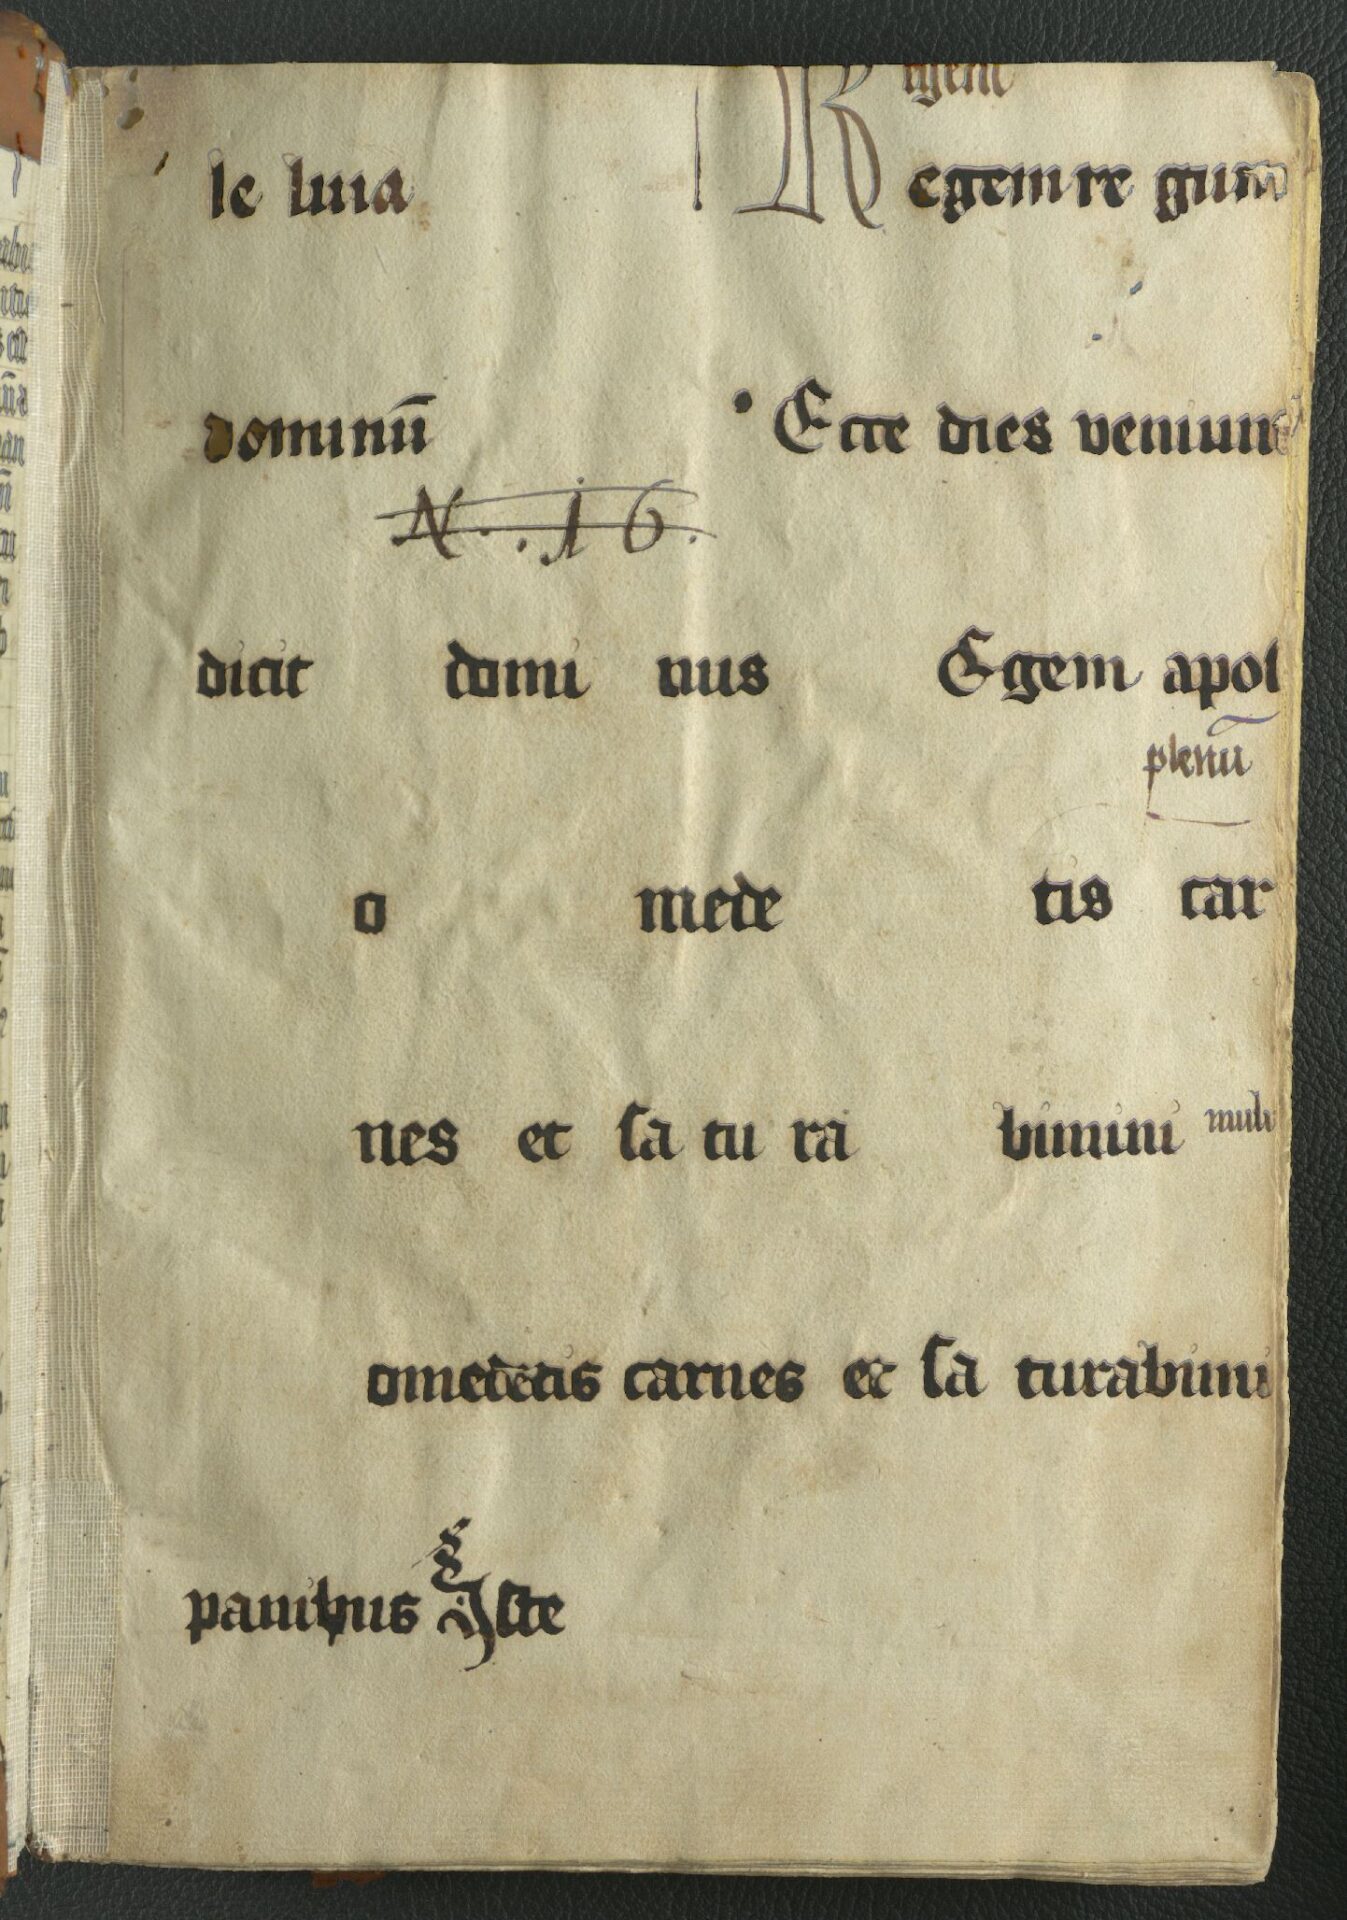 egem
le luia R egem re gum
dominū Ecce dies veniunt
N. . 16.
dicit domi nus Egem apol
plenū
o mede tis car
nes et sa tu ra bimini
omedetis carnes et sa turabimi
panibus Iste